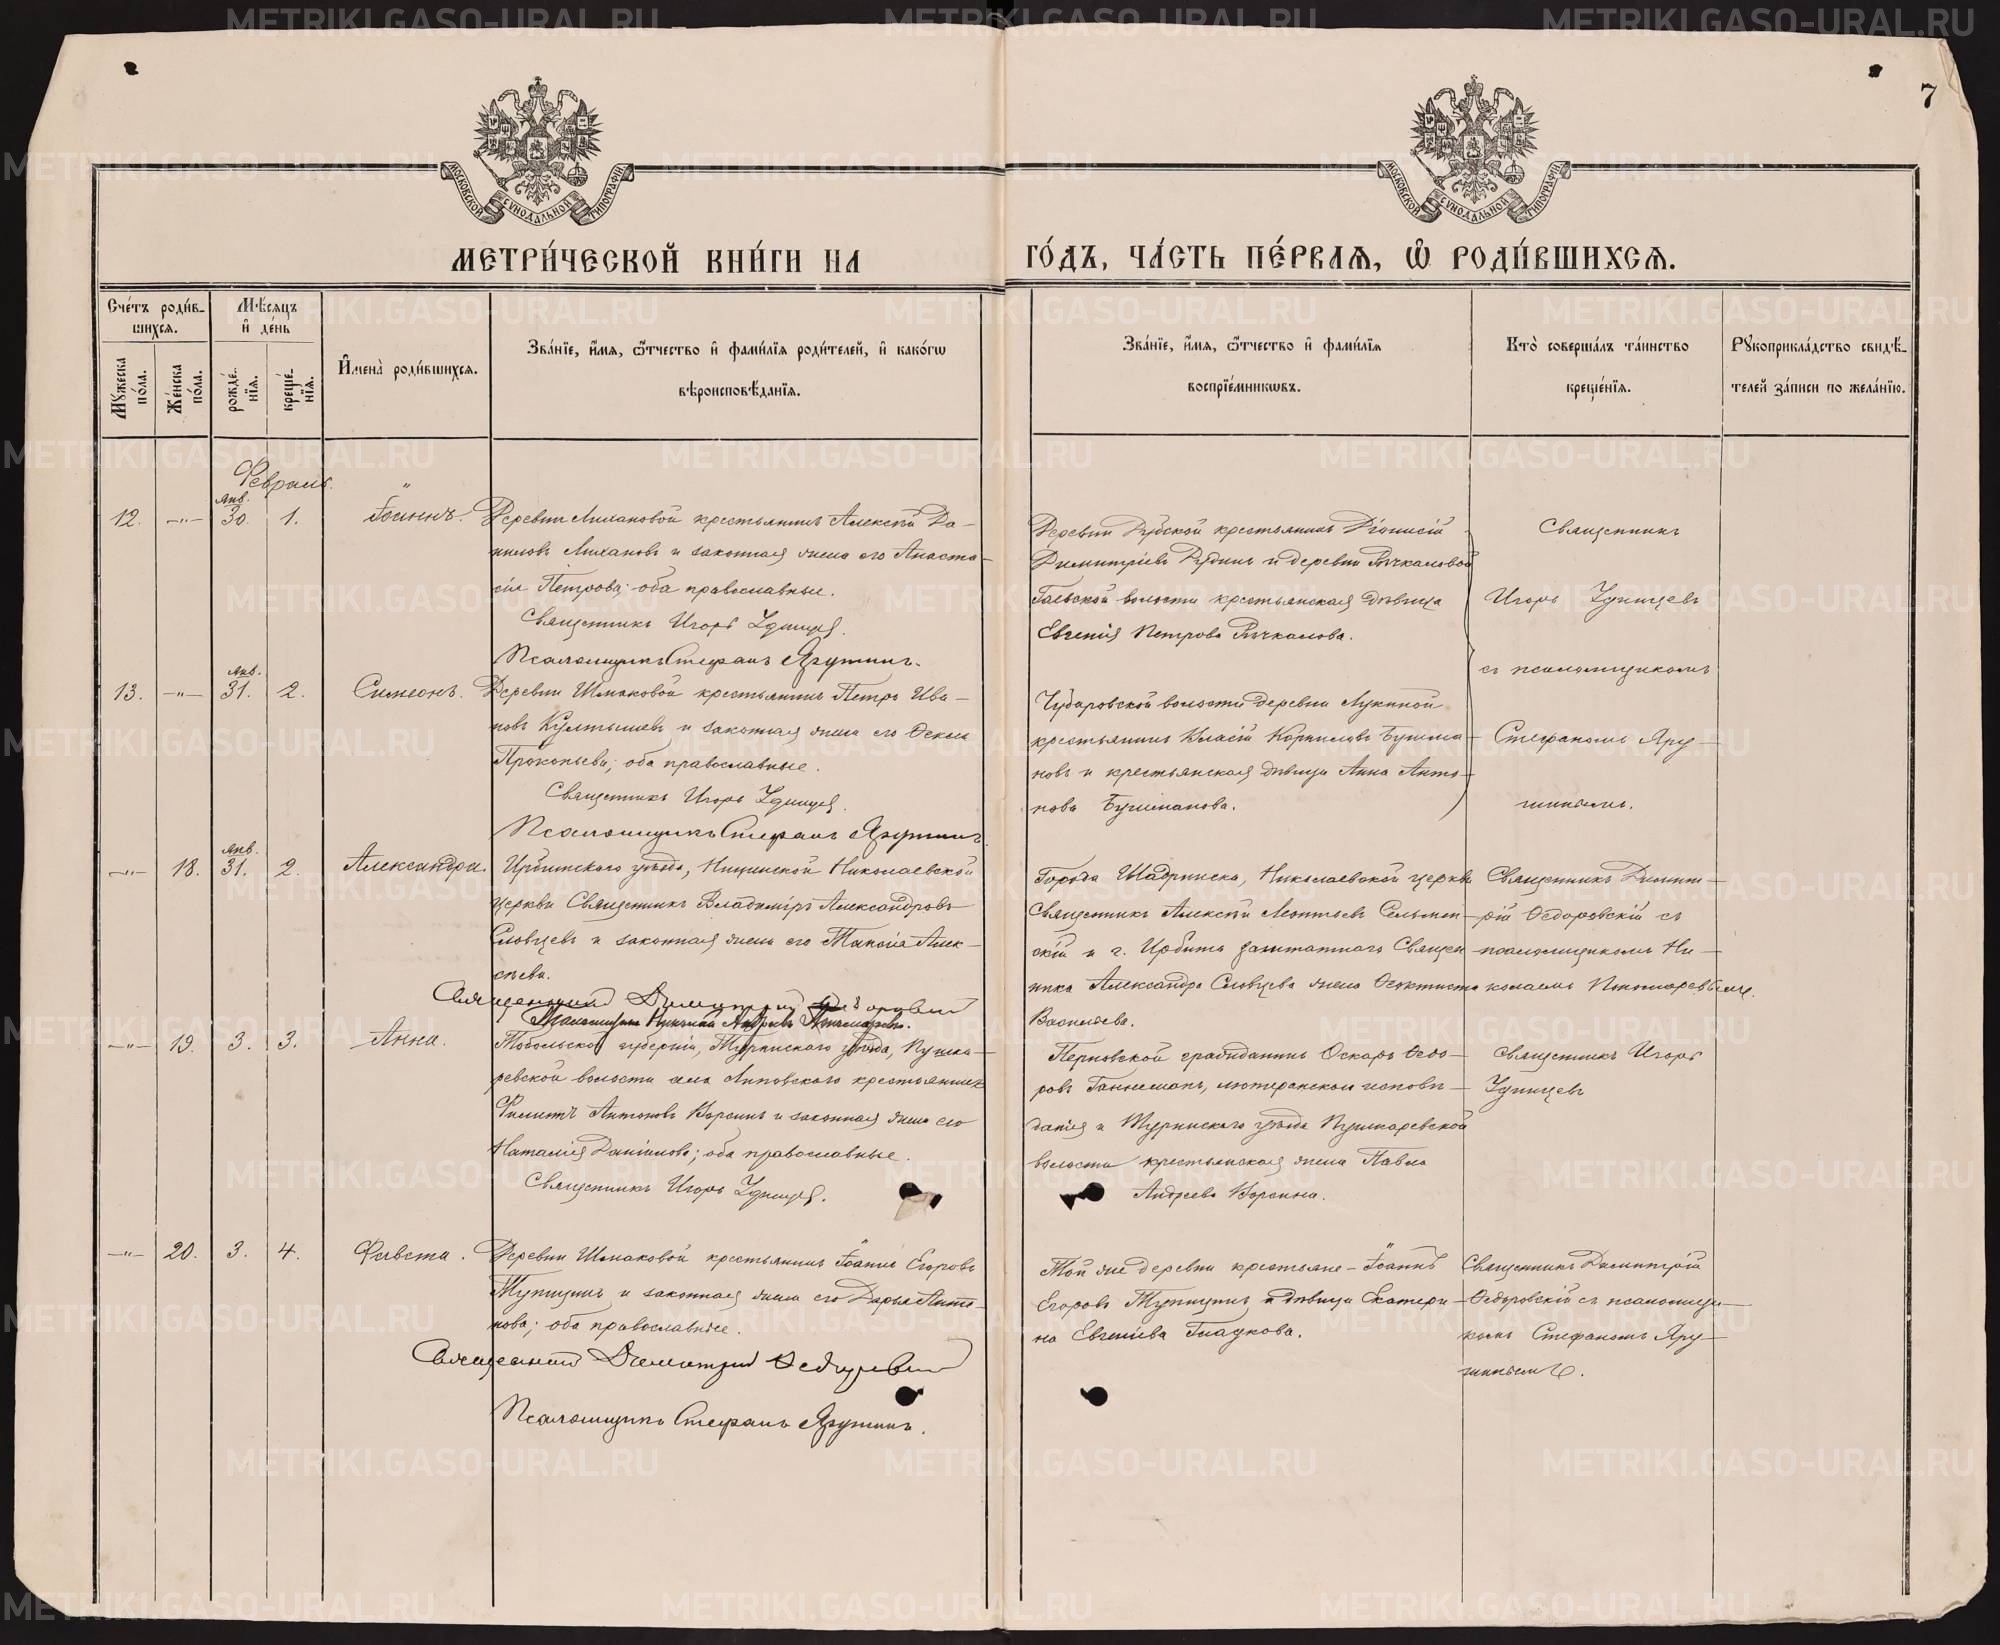 7
МОСКОВСКОЙ СѴНОДАЛЬНОЙ ТИПОГРАФІИ
МОСКОВСКОЙ СѴНОДАЛЬНОЙ ТИПОГРАФІИ
МЕТРИ́ЧЕСКОЙ КНИ́ГИ НА
ГО́ДЪ, ЧА́СТЬ ПЕ́РВАѦ, Ѡ РОДИ́ВШИХСѦ.
Сче́тъ роди́в-
шихсѧ.
Мꙋжеска по́ла.
Же́нска по́ла.
Мѣ́сѧцъ
и҆ де́нь
рожде́-
нїѧ.
креще́-
нїѧ.
И҆мена̀ роди́вшихсѧ.
Зва́нїе, и҆́мѧ, ѻ҆́тчество и҆ фами́лїѧ роди́телей, и҆ како́гѡ
вѣроисповѣ́данїѧ.
Зва́нїе, и҆́мѧ, ѻ҆́тчество и҆ фами́лїѧ
воспрїе́мникѡвъ.
Кто̀ соверша́лъ та́инство
креще́нїѧ.
Рꙋкоприкла́дство свидѣ́-
телей за́писи по жела́нїю.
Февраль.
12. —"— Янв. 30. 1. Іоаннъ.
Деревни крестьянинъ Алексѣй Да-
ниловъ и законная жена его Анаста-
сія Петрова; оба православные.
Священникъ Игорь
Псаломщикъ Стефанъ Ярушинъ.
Деревни крестьянинъ Діонисій
Димитріевъ и деревни
волости крестьянская дѣвица
Евгенія Петрова
Священникъ
Игорь
съ псаломщикомъ
Стефаномъ Яру-
шинымъ.
13. —"— Янв. 31. 2. Симеонъ.
Деревни Шмаковой крестьянинъ Петръ Ива-
новъ и законная жена его Ѳекла
Прокопьева; оба православные.
Священникъ Игорь
Псаломщикъ Стефанъ Ярушинъ.
Чубаровской волости деревни Лукиной
крестьянинъ Власій Корниловъ Бушма-
новъ и крестьянская дѣвица Анна Анто-
нова Бушманова.
—"— 18. Янв. 31. 2. Александра.
Ирбитскаго уѣзда, Ницинской Николаевской
церкви Священникъ Владиміръ Александровъ
Словцевъ и законная жена его Таисія Алек-
сѣева.
Священникъ Димитрій
Города Шадринска, Николаевской церкви
Священникъ Алексѣй Леонтьевъ
и г. Ирбита заштатнаго Священ-
ника Александра Словцева жена Ѳеоктиста
Васильева.
Священникъ Димит-
рій Ѳедоровскій съ
псаломщикомъ Ни-
колаемъ Пономаревымъ.
—"— 19. 3. 3. Анна.
Тобольской губерніи, Туринскаго уѣзда, Пушка-
ревской волости села Липовскаго крестьянинъ
Филиппъ Антоновъ и законная жена его
Наталія Даніилова; оба православные.
Священникъ Игорь
Перновской гражданинъ Оскаръ Ѳедо-
ровъ лютеранскаго исповѣ-
данія и Туринскаго уѣзда Пушкаревской
волости крестьянская жена Павла
Андреева
Священникъ Игорь
—"— 20. 3. 4. Фавста.
Деревни Шмаковой крестьянинъ Іоаннъ Егоровъ
и законная жена его Дарья Анто-
нова; оба православные.
Священникъ Димитрій Ѳедоровскій
Псаломщикъ Стефанъ Ярушинъ.
Той же деревни крестьяне - Іоаннъ
Егоровъ и дѣвица Екатери-
на Евгеніева Глаукова.
Священникъ Димитрій
Ѳедоровскій съ псаломщи-
комъ Стефаномъ Яру-
шинымъ.